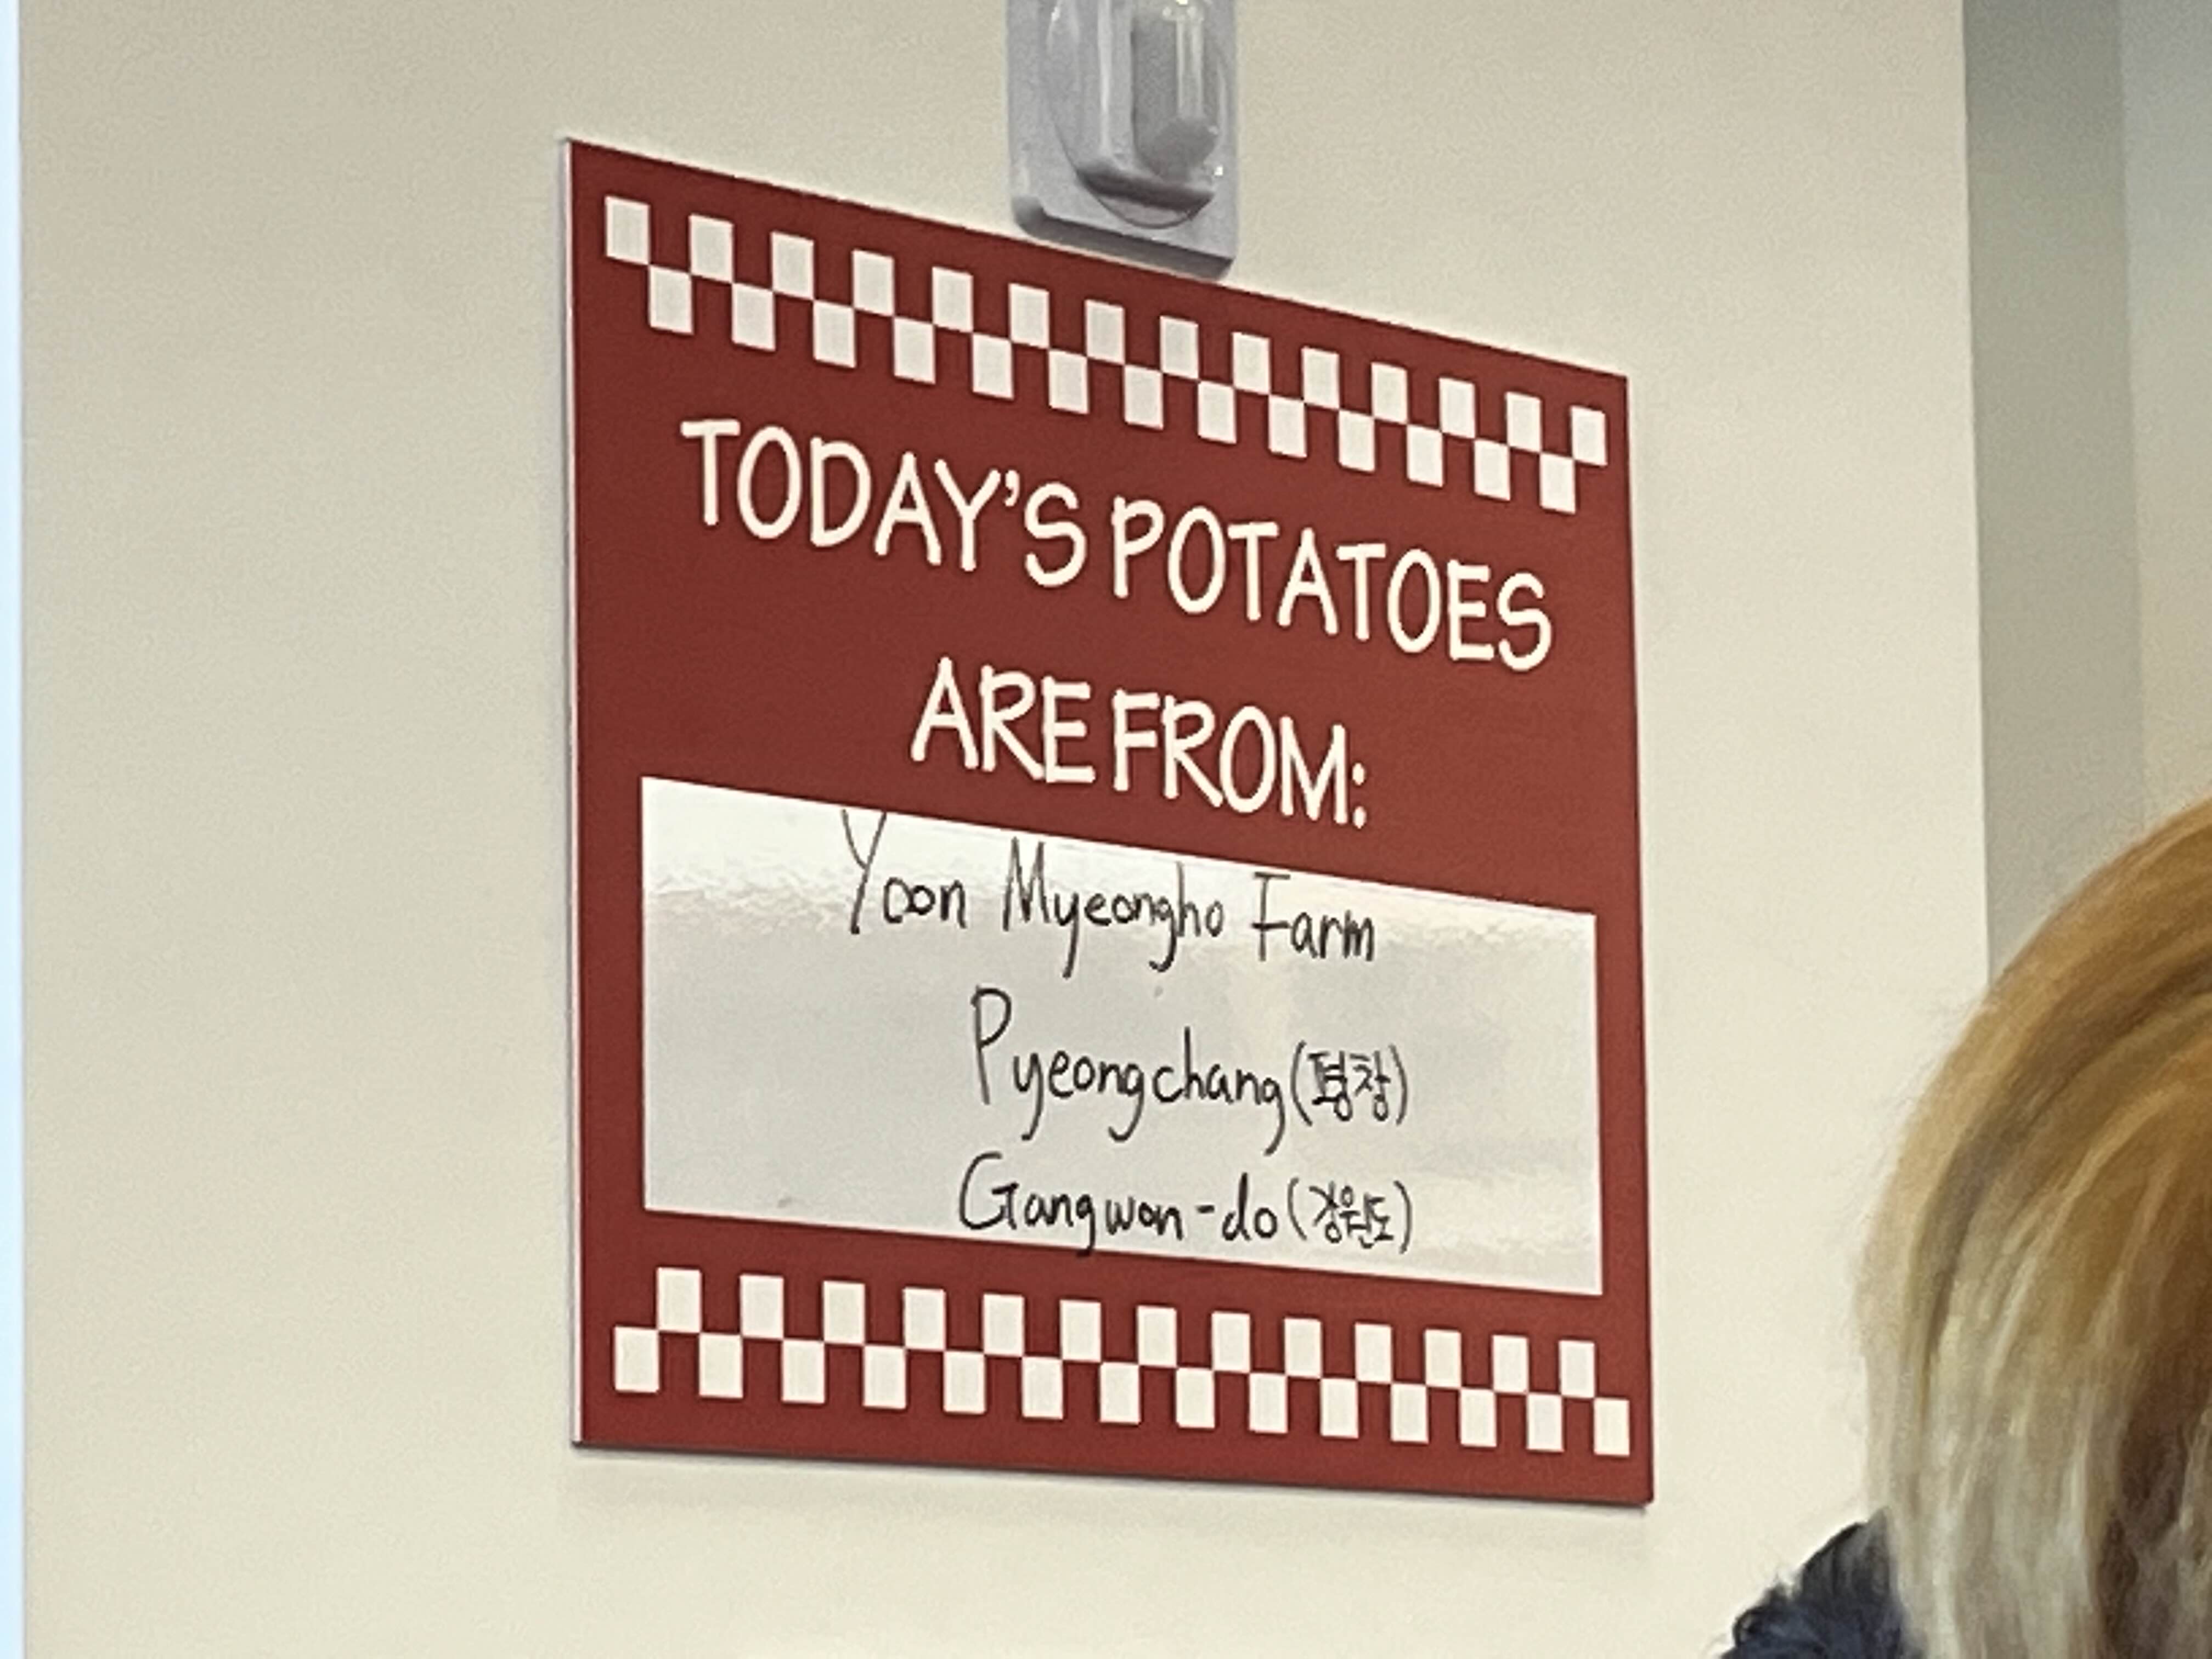 TODAY'S POTATOES
ARE FROM:
Yoon Myeongho Farm
Pyeongchang (평창)
Gangwon-do (강원도)